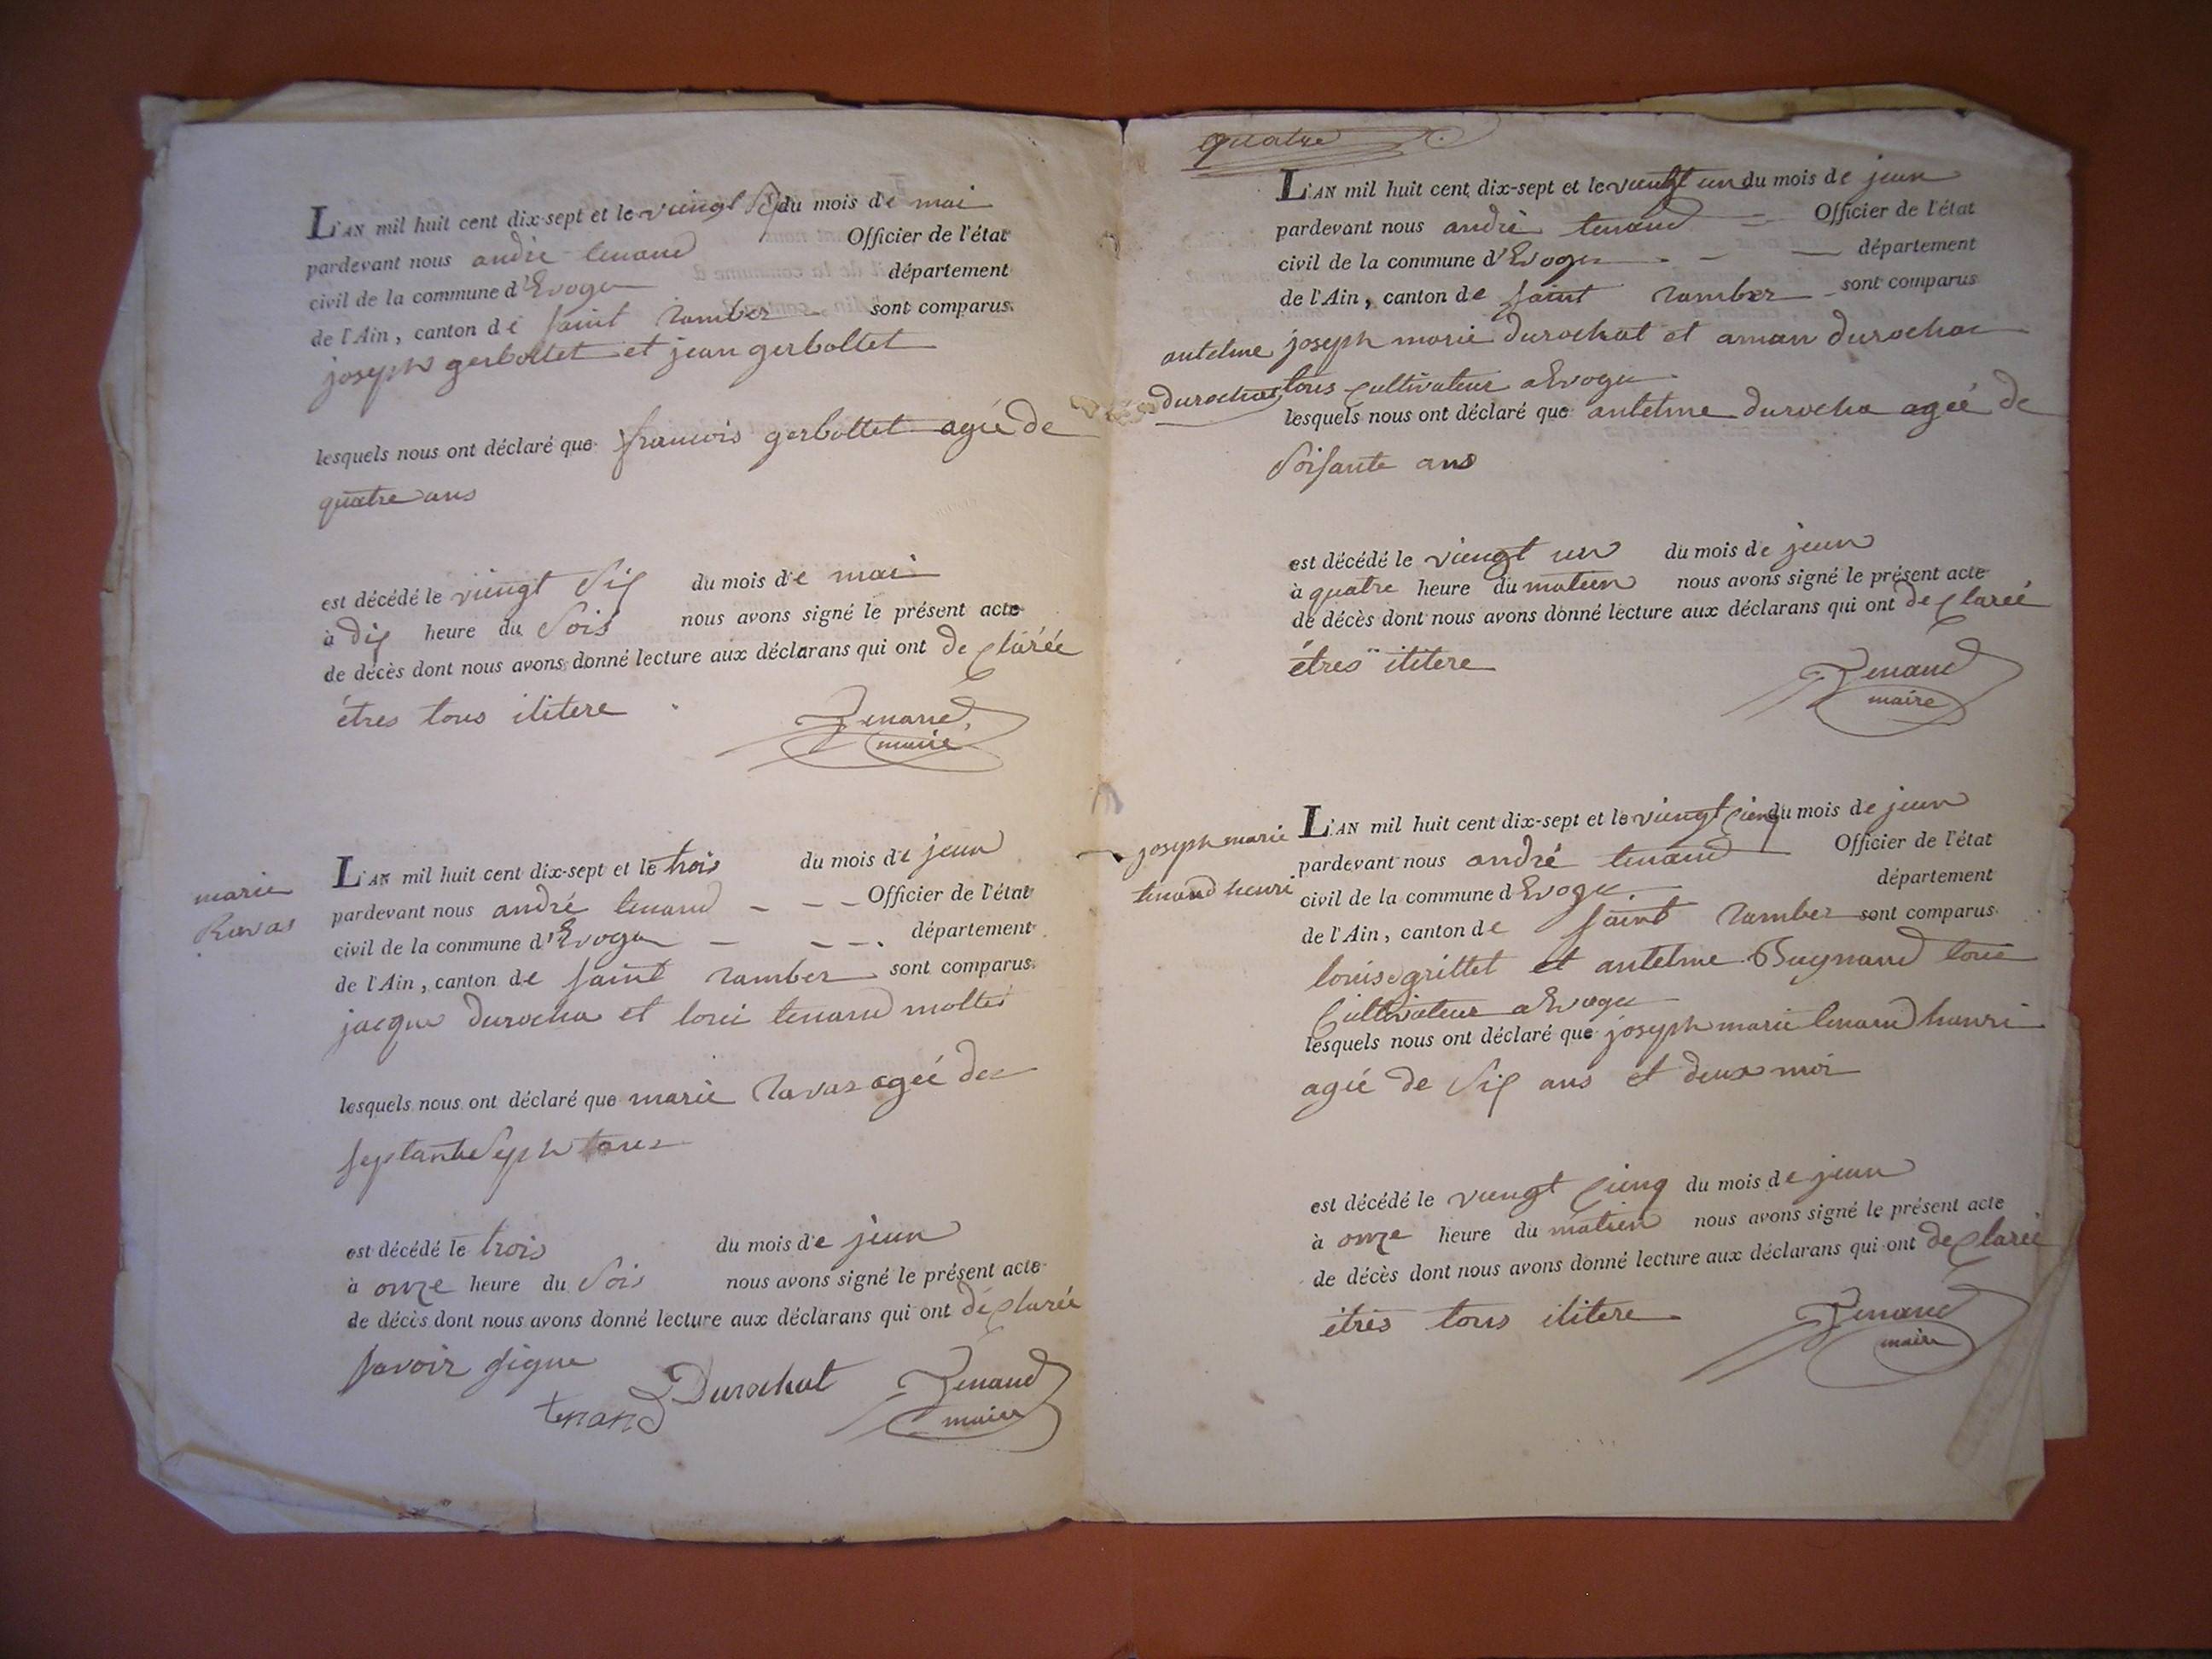 L'AN mil huit cent dix-sept et le viengt six du mois de mai
pardevant nous andré tenand Officier de l'état
civil de la commune d'Evoge département
de l'Ain, canton de saint ramber sont comparus
joseph gerbottet et jean gerbottet
lesquels nous ont déclaré que francois gerbottet agée de
quatre ans
est décédé le viengt six du mois de mai
à dix heure du soir nous avons signé le présent acte
de décès dont nous avons donné lecture aux déclarans qui ont declarée
êtres tous ilitere
Tenand
maire
marie
Ravas
L'AN mil huit cent dix-sept et le trois du mois de jeun
pardevant nous andré tenand Officier de l'état
civil de la commune d'Evoge département
de l'Ain, canton de saint ramber sont comparus
jacque durocha et loui tenand mollié
lesquels nous ont déclaré que marie ravas agée de
septante seph
est décédé le trois du mois de jeun
à onze heure du soir nous avons signé le présent acte
de décès dont nous avons donné lecture aux déclarans qui ont declarée
savoir signe
tenand Durochat Tenand
maire
quatre
L'AN mil huit cent dix-sept et le viengt un du mois de jeun
pardevant nous andré tenand Officier de l'état
civil de la commune d'Evoge département
de l'Ain, canton de saint ramber sont comparus
antelme
durochat
joseph marie durochat et aman durochat
tous cultivateur a Evoge
lesquels nous ont déclaré que antelme durocha agée de
soisante ans
est décédé le viengt un du mois de jeun
à quatre heure du matien nous avons signé le présent acte
de décès dont nous avons donné lecture aux déclarans qui ont declarée
êtres ilitere
Tenand
maire
joseph marie
tenand henri
L'AN mil huit cent dix-sept et le viengt cienq du mois de jeun
pardevant nous andré tenand Officier de l'état
civil de la commune d Evoge département
de l'Ain, canton de saint ramber sont comparus
louis grittet et antelme Bugnand tous
cultivateur a Evoge
lesquels nous ont déclaré que joseph marie tenand hanri
agée de six ans et deux moi
est décédé le viengt cienq du mois de jeun
à onze heure du matien nous avons signé le présent acte
de décès dont nous avons donné lecture aux déclarans qui ont declarée
êtres tous ilitere
Tenand
maire